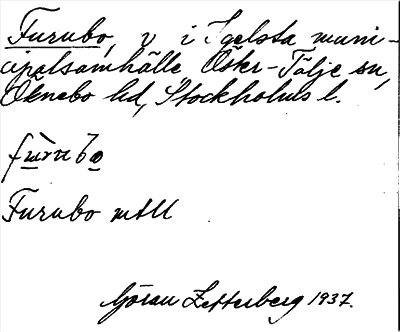 Furubo, v i Igelsta muni-
cipalsamhälle Öster-Tälje sn,
Öknebo hd, Stockholms l.
Furubo
Göran Zetterberg 1937.